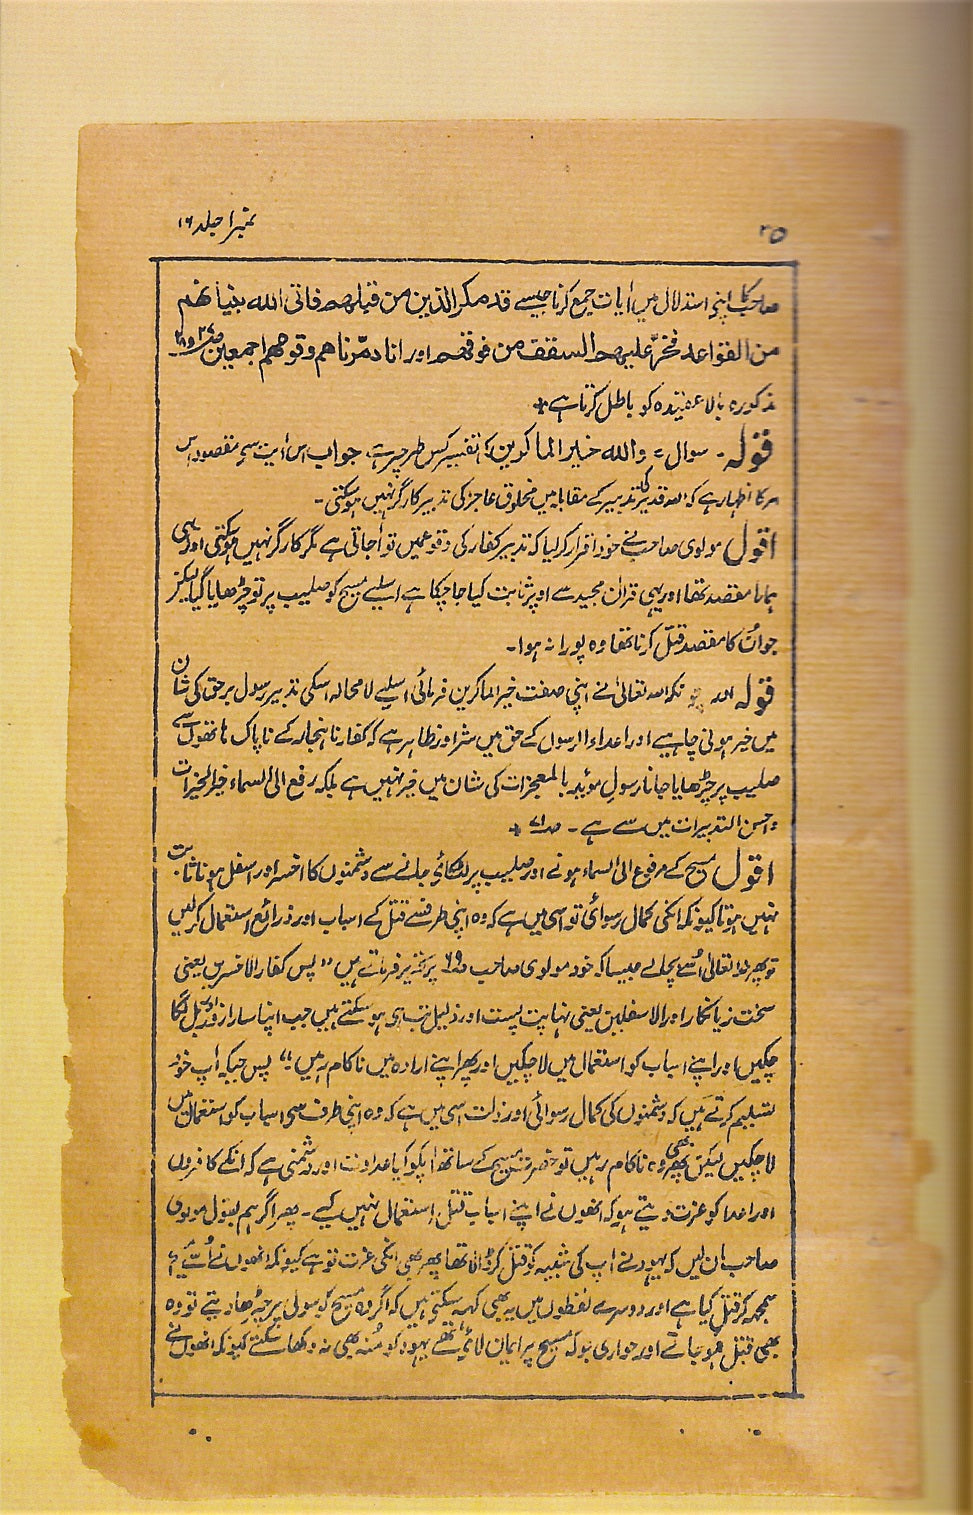 ۲۵
نمبر۱ جلد ۱۶
صاحب کا اپنے استدلال میں آیات جمع کرنا جیسے قد مکر الذین من قبلھم فاتی اللہ بنیانھم
من القواعد فخرّ علیھم السقف من فوقھم اور انا دمّرناھم وقومھم اجمعین
مذکورہ بالا عقیدہ کو باطل کرتا ہے
قولہ ۔ سوال = واللہ خیر الماکرین کی تفسیر کس طرح پر ہے، جواب اس آیت سے مقصود اس
امر کا اظہار ہے کہ اللہ قدیر کی تدبیر کے مقابلہ میں مخلوق عاجز کی تدبیر کارگر نہیں ہو سکتی ۔
اقول مولوی صاحب نے خود اقرار کر لیا کہ تدبیر کفار کی وقوع میں تو آجاتی ہے مگر کارگر نہیں ہو سکتی اور یہی
ہمارا مقصد تھا اور یہی قرآن مجید سے اوپر ثابت کیا جا چکا ہے اسلیے مسیح کو صلیب پر تو چڑھایا گیا لیکن
جو اُن کا مقصد قتل کرنا تھا وہ پورا نہ ہوا ۔
قولہ اللہ تعالیٰ نے اپنی صفت خیر الماکرین فرمائی اسلیے لا محالہ اسکی تدبیر رسول برحق کی شان
میں خیر ہونی چاہیے اور اعداء الرسول کے حق میں شر اور ظاہر ہے کہ کفار نا ہنجار کے ناپاک ہاتھوں سے
صلیب پر چڑھایا جانا رسول مؤید بالمعجزات کی شان میں خیر نہیں ہے بلکہ رفع الی السماء خیر الخیرات
و احسن التدبیرات میں سے ہے ۔ صـ۷۱
اقول مسیح کے مرفوع الی السماء ہونے اور صلیب پر لٹکائے جانے سے دشمنوں کا اخسر اور اسفل ہونا ثابت
نہیں ہوتا کیونکہ انکی کمال رسوائی تو اسی میں ہے کہ وہ اپنی طرف سے قتل کے اسباب اور ذرائع استعمال کر لیں
تو پھر اللہ تعالیٰ اُسے بچا لے جیسا کہ خود مولوی صاحب صـ۶۹ پر تحریر فرماتے ہیں "پس کفار الاخسرین یعنی
سخت زیانکار اور الاسفلین یعنی نہایت پست اور ذلیل تب ہی ہو سکتے ہیں جب اپنا سارا زور اور بل لگا
چکیں اور اپنے اسباب کو استعمال میں لا چکیں اور پھر اپنے ارادہ میں ناکام رہیں" پس جبکہ آپ خود
تسلیم کرتے ہیں کہ دشمنوں کی کمال رسوائی اور ذلت اسی میں ہے کہ وہ اپنی طرف سے اسباب کو استعمال میں
لا چکیں لیکن پھر بھی وہ ناکام رہیں تو حضرت مسیح کے ساتھ آپکو کیا عداوت اور دشمنی ہے کہ انکے کافروں
اور اعدا کو عزت دیتے ہو کہ انھوں نے اپنے اسباب قتل استعمال نہیں کیے ۔ پھر اگر ہم بقول مولوی
صاحب مان لیں کہ یہود نے آپ کی شبیہ کو قتل کر ڈالا تھا پھر بھی انکی عزت تو ہے کیونکہ انھوں نے اُسے مسیح
سمجھ کر قتل کیا ہے اور دوسرے لفظوں میں یہ بھی کہہ سکتے ہیں کہ اگر وہ مسیح کو سولی پر چڑھا دیتے تو وہ
بھی قتل ہو جاتے اور حواری جو کہ مسیح پر ایمان لائے تھے یہود کو منہ بھی نہ دکھا سکتے کیونکہ انھوں نے